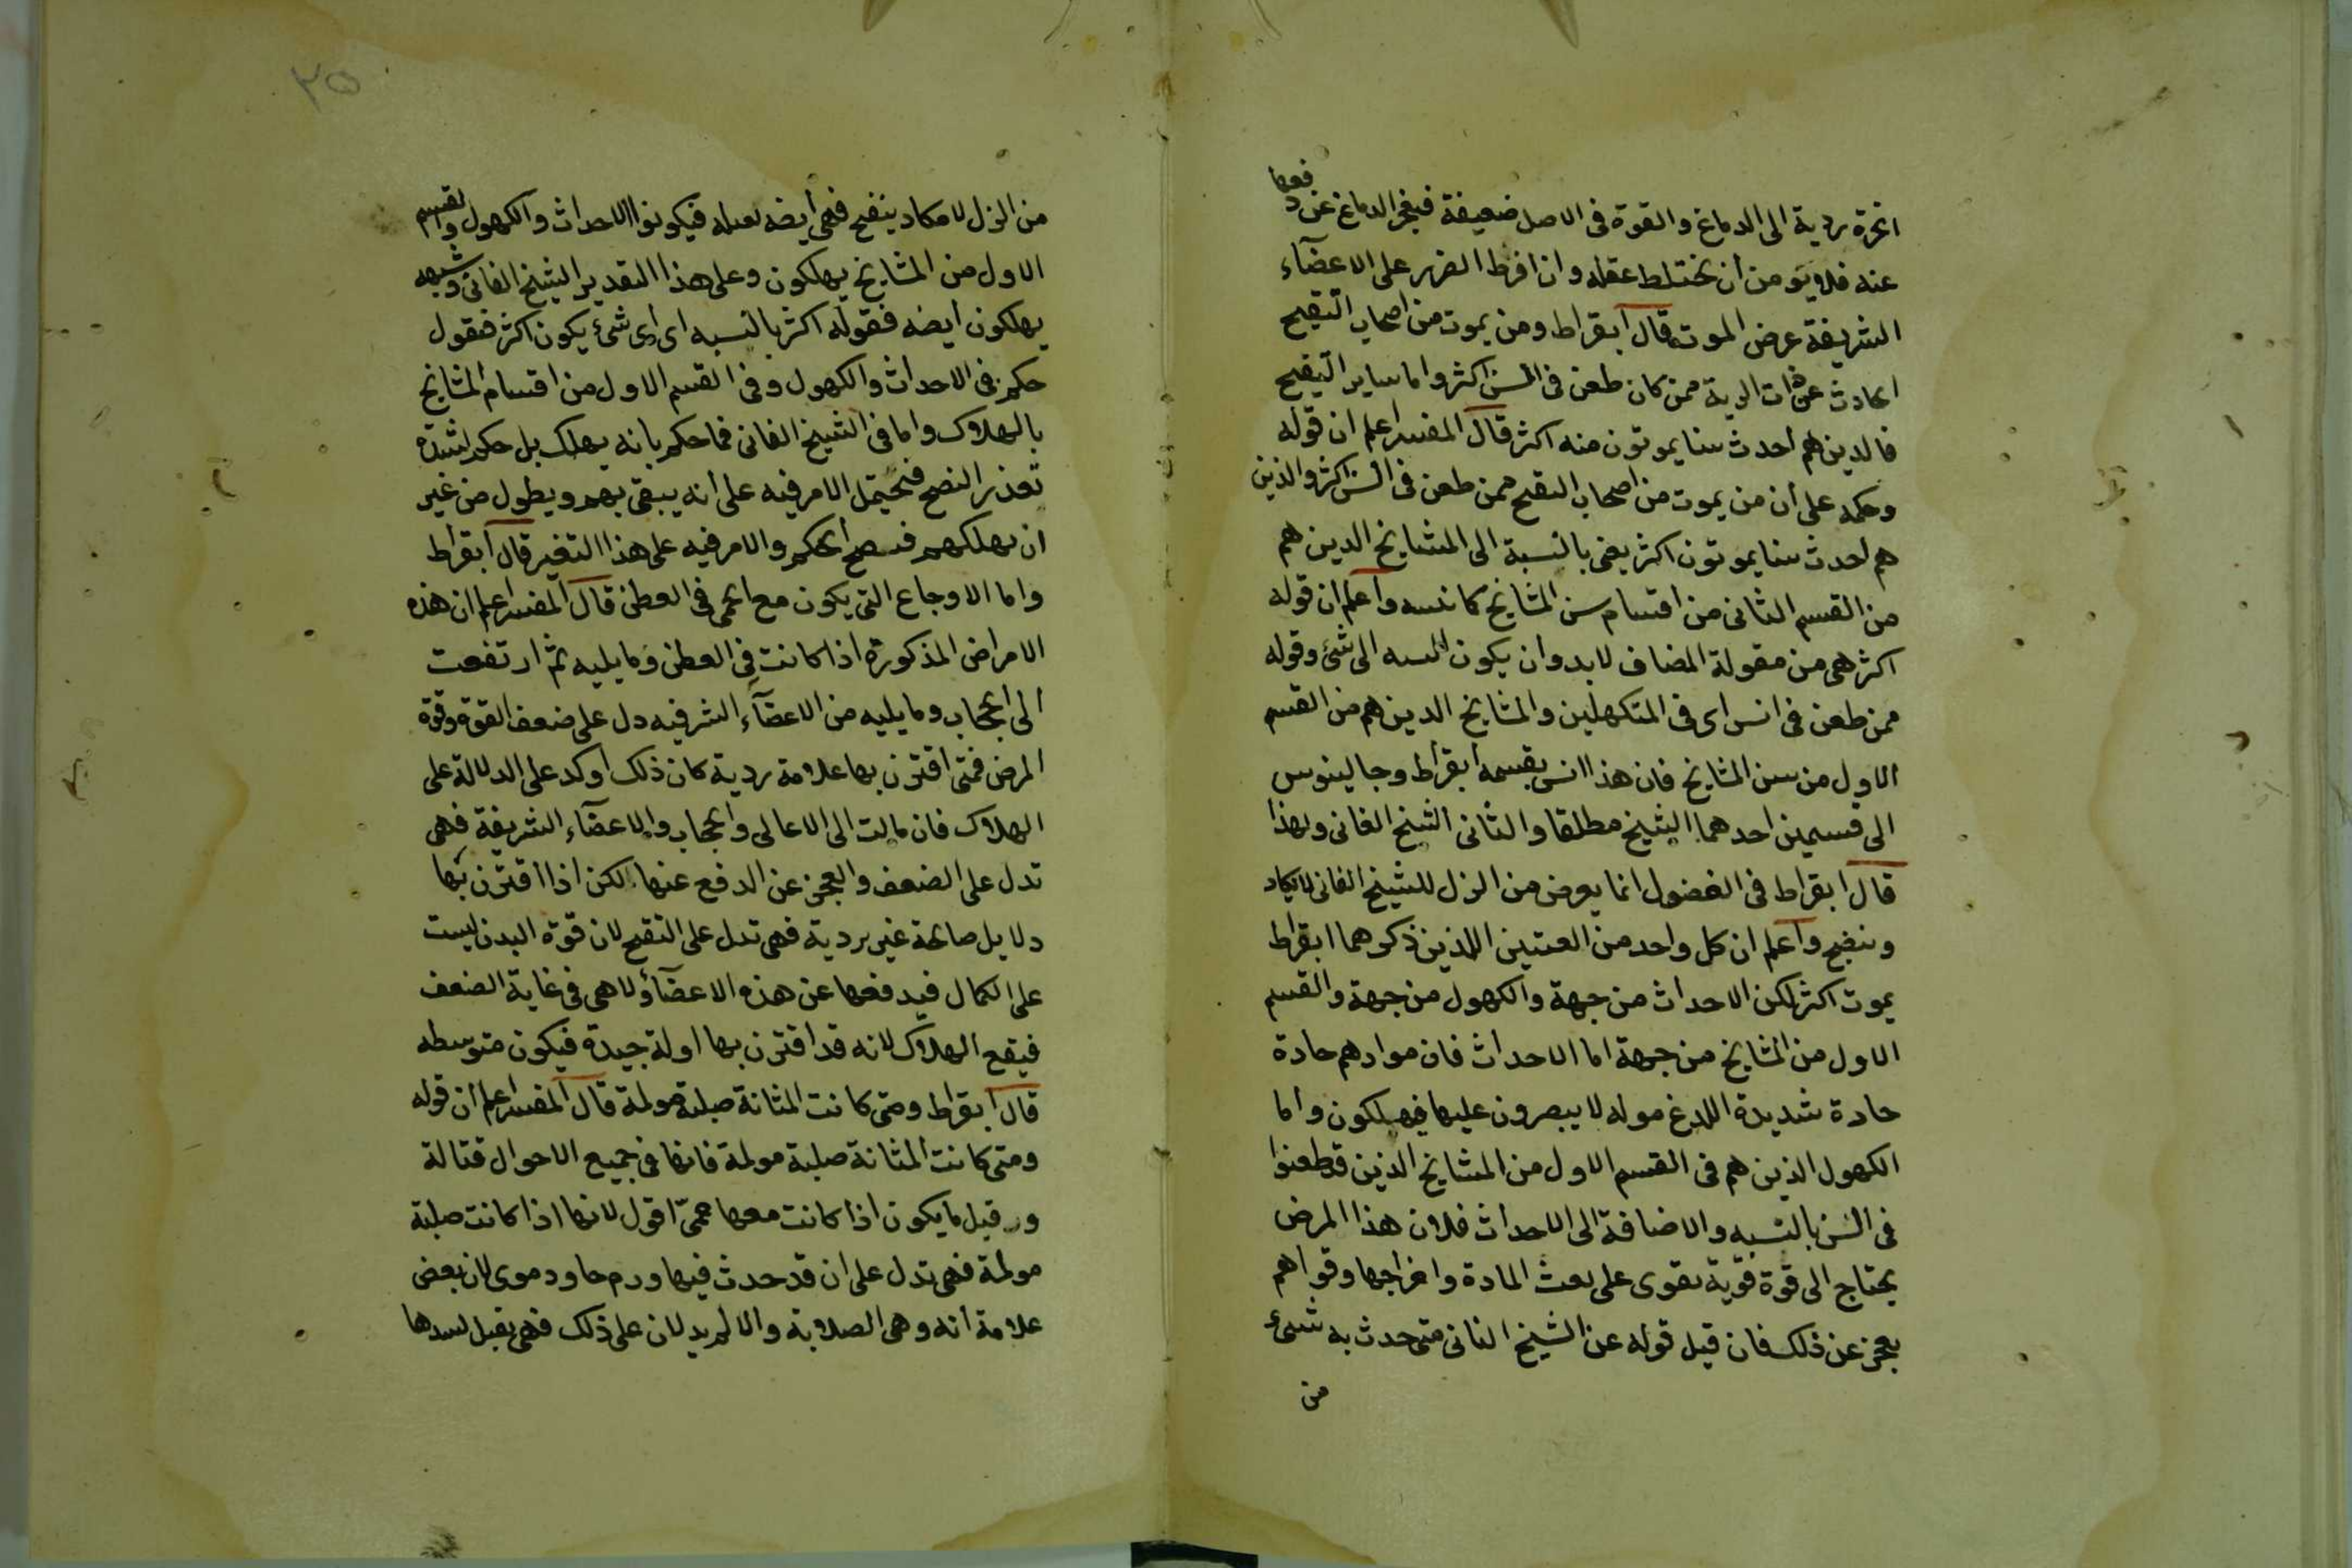 ابخرة ردية الى الدماغ والقوة فى الاصل ضعيفة فيعجز الدماغ عن دفعها
عنه فلا يؤمن أن يختلط عقله وان افرط الضرر على الاعضآء
الشريفة عرض الموت قال ابقراط ومن يموت من اصحاب التقيح
الحادث عن ذات الرية ممن كان طعن فى السن اكثر واما ساير التقيح
فالدين هم احدث سنا يموتون منه اكثر قال المفسر اعلم ان قوله
وحكمه على أن من يموت من اصحاب التقيح ممن طعن فى السن اكثر والذين
هم احدث سنا يموتون اكثر يعنى بالنسبة الى المشايخ الدين هم
من القسم الثانى من اقسام سن المشايخ واعلم ان قوله
اكثر هى من مقولة المضاف لا بد وان يكون الى شئ وقوله
ممن طعن فى السن اى فى المتكهلين والمشايخ الدين هم من القسم
الاول من سن المشايخ فان هذا السن يقسمه ابقراط وجالينوس
الى قسمين احدهما الشيخ مطلقا والثانى الشيخ الفانى ولهذا
قال ابقراط فى الفصول انما يعرض من النزل للشيخ الفانى لا يكاد
وينضج واعلم ان كل واحد من اللذين ذكرهما ابقراط
يموت اكثر لكن الاحداث من جهة والكهول من جهة والقسم
الاول من المشايخ من جهة اما الاحداث فان موادهم حادة
حادة شديدة اللدغ موله لا يصبرون عليها فيهلكون واما
الكهول الذين هم فى القسم الاول من المشايخ الذين قد طعنوا
فى السن بالنسبه والاضافة الى الاحداث فلان هذا المرض
يحتاج الى قوة قوية تقوى على المادة واخراجها وقواهم
يعجز عن ذلك فان قيل قوله عن الشيخ الفانى متى حدث به شىء
من
٢٥
من النزل لا يكاد ينضج فهى أيضه فيكونوا الاحداث والكهول والقسم
الاول من المشايخ يهلكون وعلى هذا التقدير الشيخ الفانى وشبهه
يهلكون ايضه فقوله اكثر بالنسبه اى اى شئ يكون اكثر فنقول
حكم فى الاحداث والكهول وفى القسم الاول من اقسام المشايخ
بالهلاك واما فى الشيخ الفانى فما حكم بانه يهلك بل حكم
تعذر النضج فيحتمل الامر فيه على انه يبقى بهم ويطول من غير
ان يهلكهم فسصح الحكم والامر فيه على هذا التفير قال ابقراط
واما الاوجاع التى يكون مع الحمى فى القطن قال المفسر اعلم ان هذه
الامراض المذكورة اذا كانت فى القطن وما يليه ثم ارتفعت
الى الحجاب وما يليه من الاعضآء الشرفيه دل على ضعف القوة وقوة
المرض فمتى اقترن بها علامة ردية كان ذلك اوكد على الدلالة على
الهلاك فان مالت الى الاعالى والحجاب والاعضآء الشريفة فهى
تدل على الضعف والعجز عن الدفع عنها لكن اذا اقترن بها
دلايل صالحة غير ردية فهى تدل على التقيح لان قوة البدن ليست
على الكمال فيدفعها عن هذه الاعضآء ولا هى فى غاية الضعف
فيقع الهلاك لانه قد اقترن بها اولة جيدة فيكون متوسطه
قال ابقراط ومتى كانت المثانة صلبة مولمة قال المفسر اعلم أن قوله
ومتى كانت المثانة صلبة مولمة فانها فى جميع الاحوال قتالة
و قبل ما يكون اذا كانت معها حمىّ اقول لانها اذا كانت صلبة
مولمة فهى تدل على ان قد حدث فيها ورم حاد دموى لان بعض
علامة انه وهى الصلابة والالم يدلان على ذلك فهى يقبل لسدها